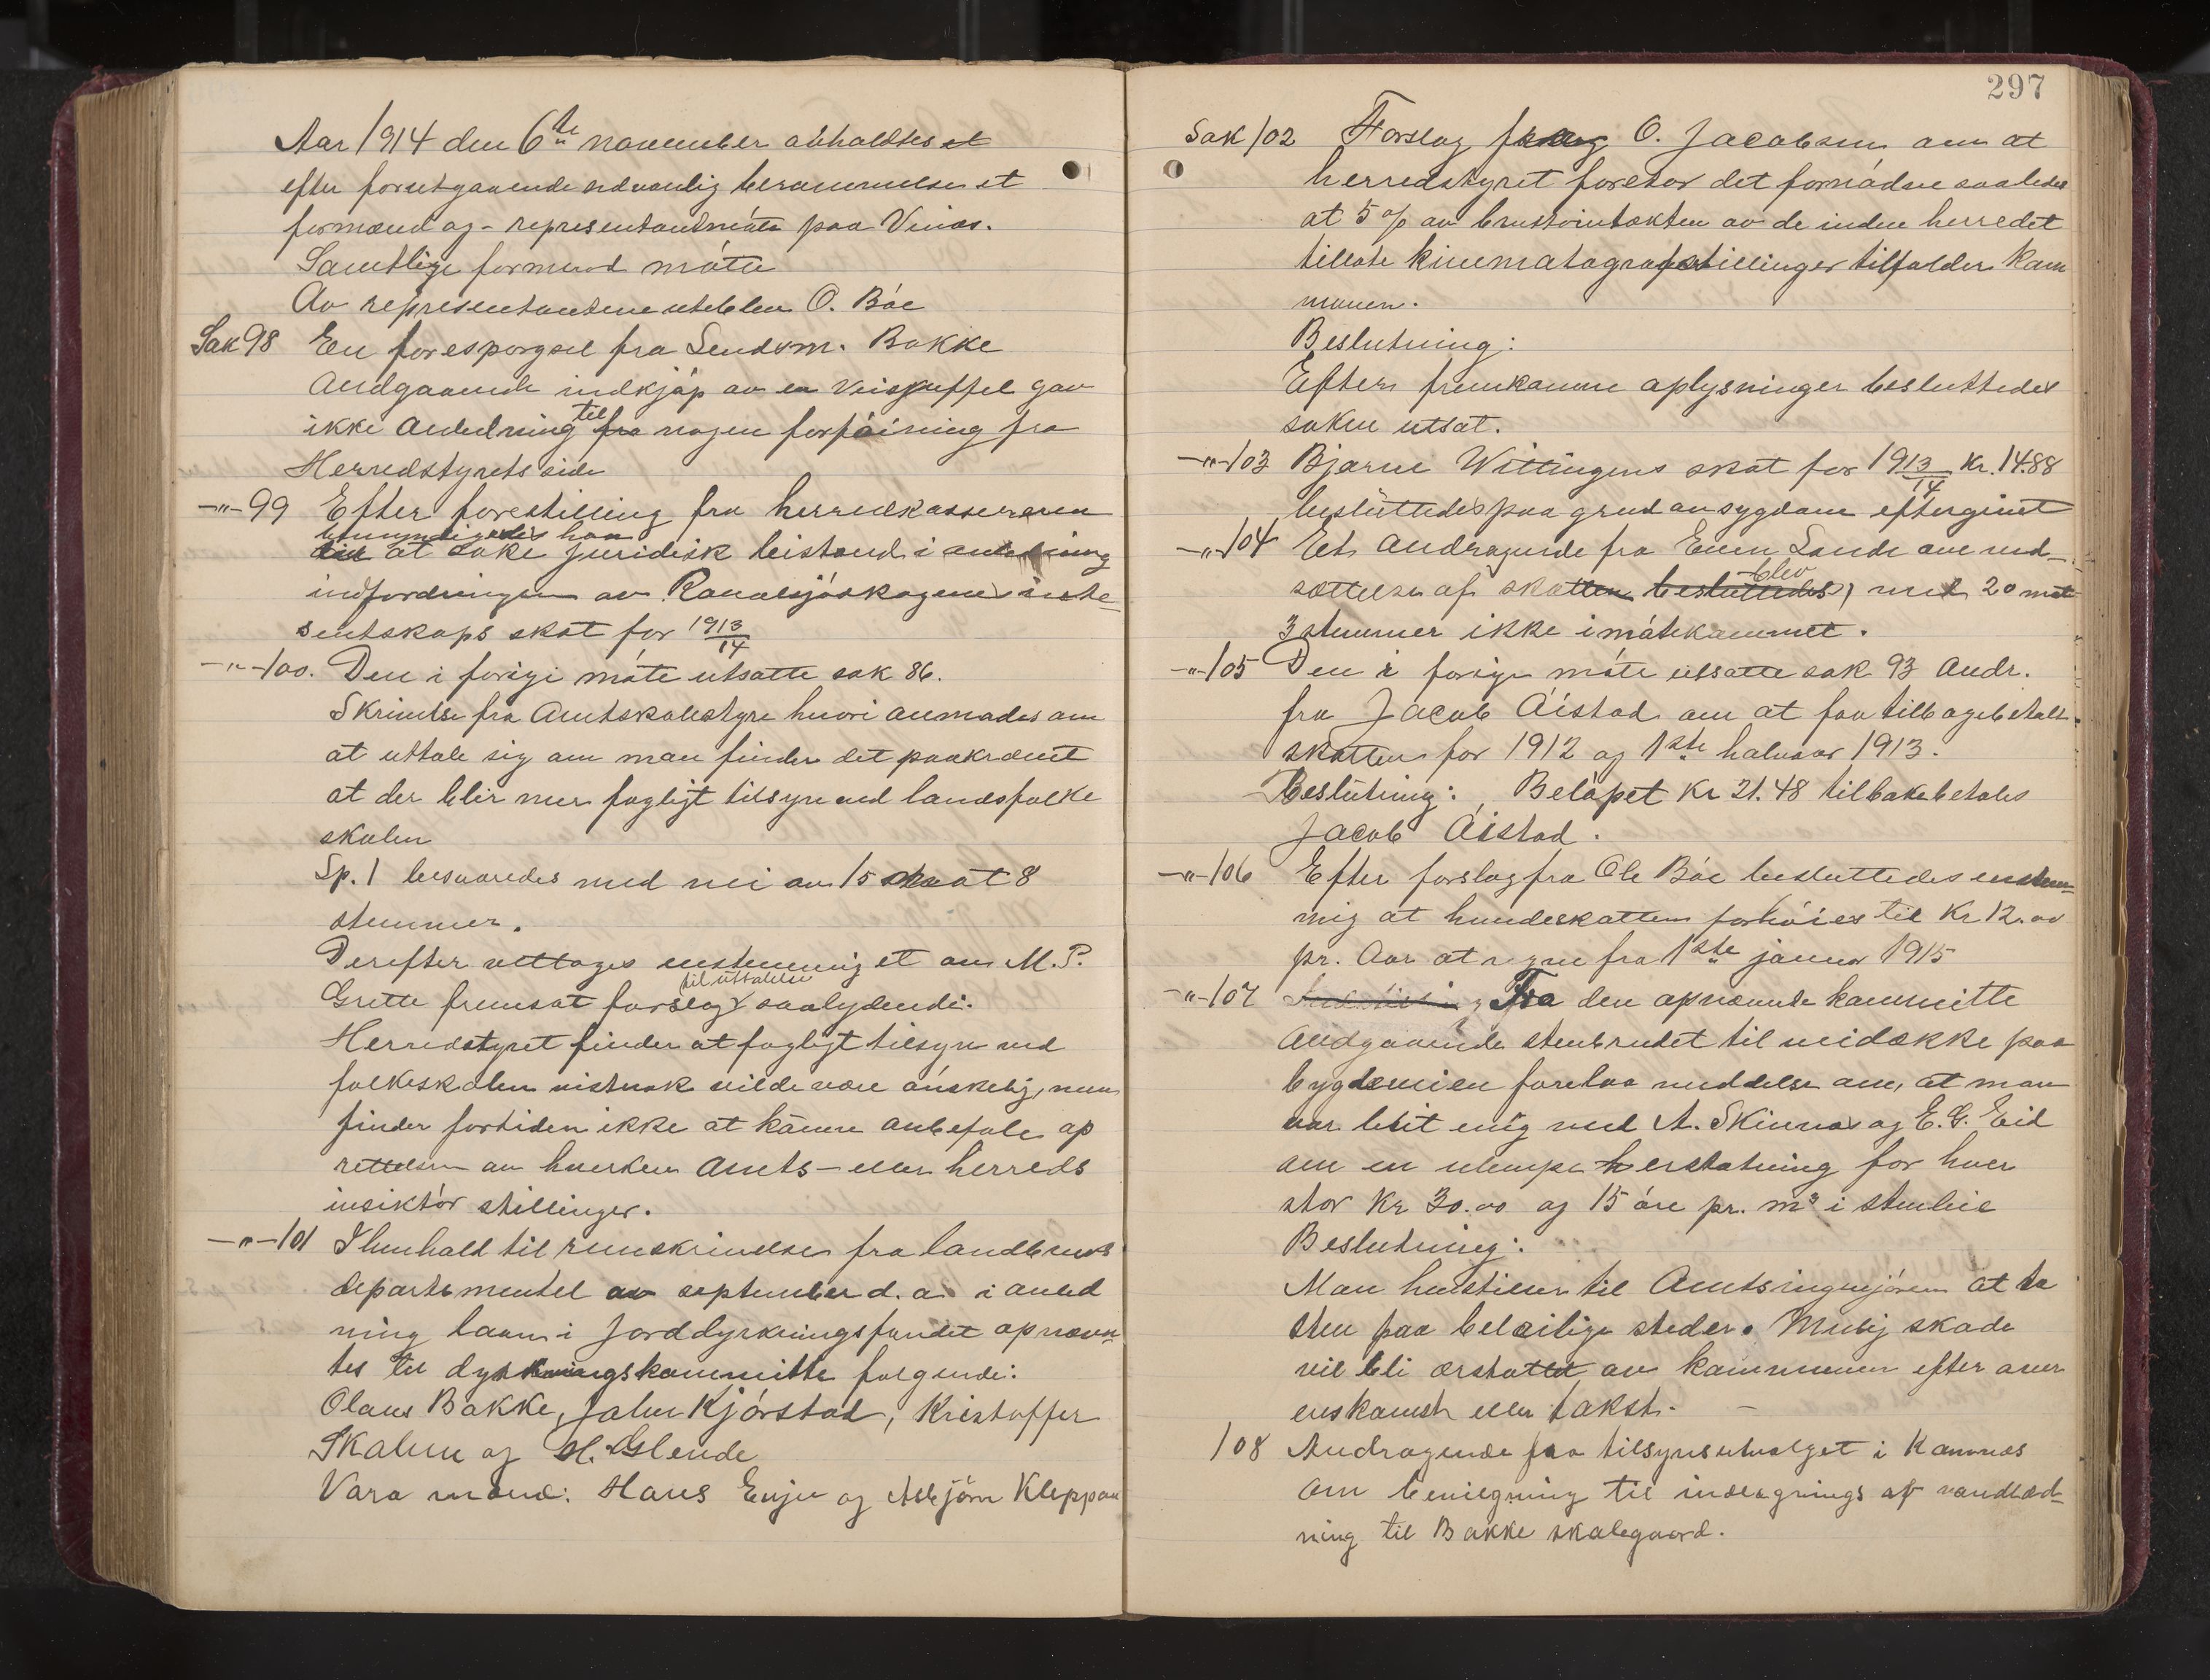 Aar 1914 den 6te november avholdtes et
efter forutgaaende sedvanlig berammelse et
formænd og - representantmöte paa Vinæs.
Samtlige formænd mötte
Av representantene uteblev O. Böe
Sak 98 En forespørgsel fra Lendsm. Bakke
Andgaaende indkjöp av en veiskuffel gav
ikke Anledning til fra nogen forföining fra
Herredstyrets side
-"- 99 Efter forestilling fra herredkassereren
bemyndigedes han
at söke juridisk bistand i anledning
indfordringen av skogenes inte-
sentskaps skat for 1913/14
-"- 100. Den i forige möte utsatte sak 86.
Skrivelse fra Amtskolestyre hvori anmodes om
at uttale sig om man finder det paakrævet
at der blir mer fagligt tilsyn ved landsfolke
skolen
Sp. 1 besvaredes med nei av 15 mot 8
stemmer.
Derefter vettoges enstemmig et av M. P.
Grette fremsat forslag til uttalelse saalydende:
Herredstyret finder at fagligt tilsyn ved
folkeskolen vistnok vilde være önskelig, men
finder fortiden ikke at kunne anbefale op
rettelsen av hverken Amts- eller herreds
insiktör stillinger.
-"- 101 I henhold til rundskrivelse fra landbruks
departementet av september d. a. i anled
ning laan i Jorddyrkningsfondet opnævn
tes til dyrkningskommitte følgende:
Olaus Bakke, John Kjörstad, Kristoffer
Skalun og H. Glende
Vara mænd: Hans Enjen og Asbjörn Kleppan
297
Sak 102 Forslag fra O. Jacobsen om at
herredstyret foretar det fornödne saaledes
at 5 % av bruttointækten av de inden herredet
tillate kinematografstillinger tilfalder kom
munen.
Beslutning:
Efter fremkomne oplysninger besluttedes
saken utsat.
-"- 103 Bjarne Wittingens skat for 1913/14 kr. 14.88
besluttedes paa grund av sygdom efterginet
-"- 104 Et Andragende fra Even Lande om ned-
sættelse af skatten besluttedes blev med 20 mot
3 stemmer ikke imötekommet.
-"- 105 Den i forige möte utsatte sak 93 Andr.
fra Jacob Öistad om at faa tilbagebetalt
skatten for 1912 og 1ste halvaar 1913.
Beslutning: Belöpet Kr 21.48 tilbakebetales
Jacob Öistad.
-"- 106 Efter forslag fra Ole Böe besluttedes enstem-
mig at hundeskatten forhöies til Kr 12.00
pr. Aar at regne fra 1ste januar 1915
-"- 107 Fra den opnævnte kommitte
Andgaaende stenbrudet til veidække paa
bygdeveien forelaa meddelse om, at man
var blit enig med A. Skinnæs og E. G. Eid
om en ulempe herstatning for hver
stor Kr 30.00 og 15 öre pr. m³ i stenleie
Beslutning:
Man henstiller til Amtsingenjören at ta
sten paa beleilige steder. Mulig skade
vil bli ærstatted av kommunen efter over
enskomst eller takst. -
108 Andragende fra tilsynsutvalget i Kamnæs
om bevilgning til indlægnings af vandled-
ning til Bakke skolegaard.